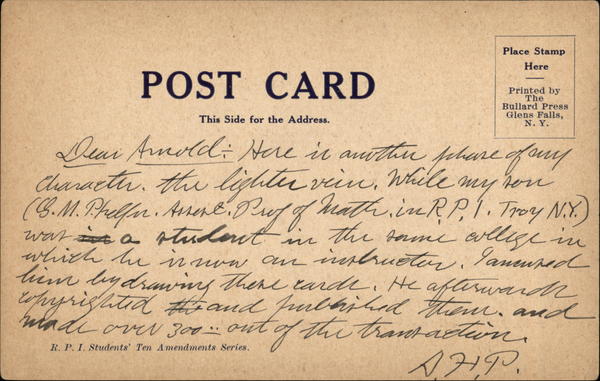 POST CARD
This Side for the Address.
Place Stamp
Here
Printed by
The
Bullard Press
Glens Falls,
N. Y.
Dear Arnold: Here is another phase of my
character. the lighter vein. While my son
(E. M. Phelps. Prof of Math. in R. P. I. Troy N.Y.)
was in a student in the same college in
which he is now an instructor. I amused
him by drawing these cards. He afterwards
copyrighted and published them. and
made over 300.. out of the transaction.
R. P. I. Students' Ten Amendments Series.